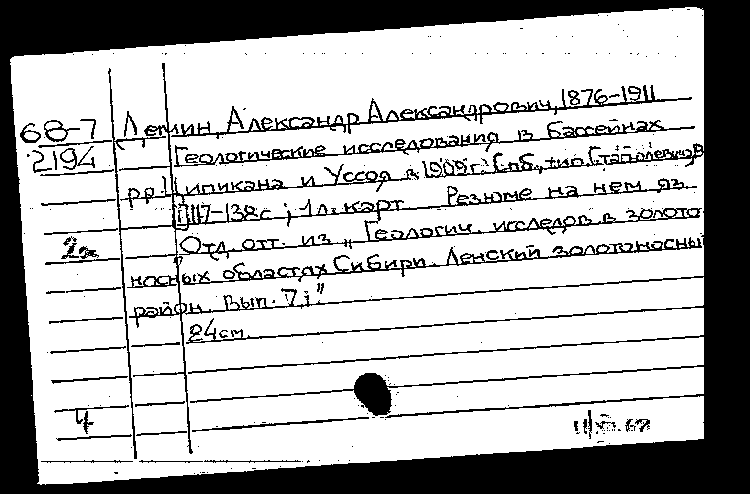 68-7
2194
Демин, Александр Александрович, 1876-1911
Геологические исследования в бассейнах
рр. Ципикана и Уссоя в 1909 г. Спб., тип. Стасюлевича
117-138 с; 1 л. карт Резюме на нем яз
2я
Отд. отт. из „Геологич. исследов в золото-
носных областях Сибири. Ленский золотоносный
район. Вып. 7;"
24 см.
4